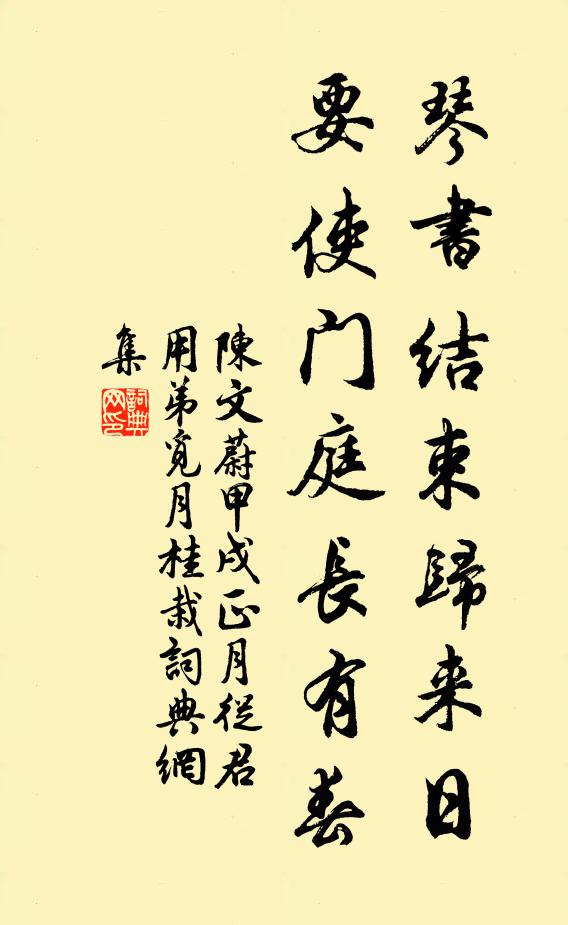 琴書結束歸来日
要使門庭長有春
陳文蔚甲戌正月從君
用弟覓月桂栽詞典網
集
詞典
网印